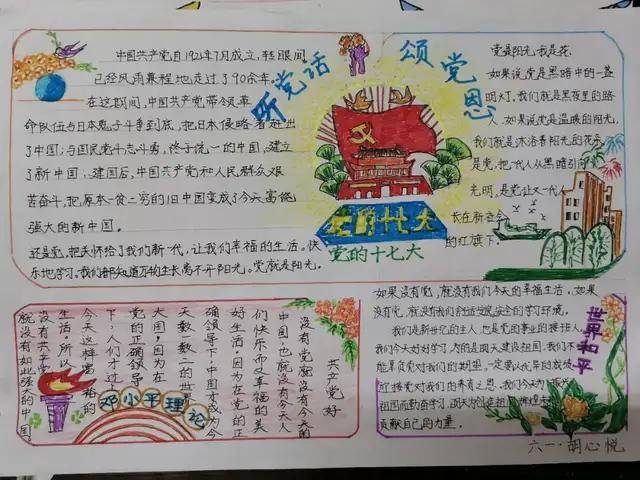 听党话
颂党恩
中国共产党自1921年7月成立,转眼间
已经风雨兼程地走过了90余年。
在这期间,中国共产党带领革
命队伍与日本鬼子斗争到底,把日本侵略者赶出
了中国;与国民党斗志斗勇,终于统一的中国,建立
了新中国、建国后,中国共产党和人民群众艰
苦奋斗,把原本一贫二穷的旧中国变成了今天富饶
强大的新中国。
还是党,把关怀给了我们新一代,让我们幸福的生活。快
乐地学习。我们都知道万物生长离不开阳光。党就是阳光。
党的十七大
党的十七大
党是阳光,我是花,
如果说党是黑暗中的一盏
明灯。我们就是黑夜里的路
人,如果说党是温暖的阳光,
我们就是沐浴着阳光的花朵
是党,把一代人从黑暗引向
光明,是党让又一代人
长在新社会
的红旗下。
共产党好
没有党就没有今天的
中国,也就没有今天人
们快乐而又幸福的美
好生活,因为在党的正
确领导下,中国才成为今
天数一数二的世界
大国,因为在
党的正确领导
下,人们才过上
今天这样富裕的
生活,所以
没有共产党
就没有如此强大的中国。
邓小平理论
如果没有党,就没有我们今天的幸福生活。如果
没有党,就没有我们舒适安全的学习环境。
我们是新世纪的主人,也是党的事业的接班人
我们今天好好学习,为的是明天建设祖国,我们不
能辜负党对我们的期望。一定要以优异的成绩
接受党对我们的养育之恩,我们今天为
祖国而勤奋学习,明天为创造祖国辉煌
贡献自己的力量。
世界和平
六一·胡心悦